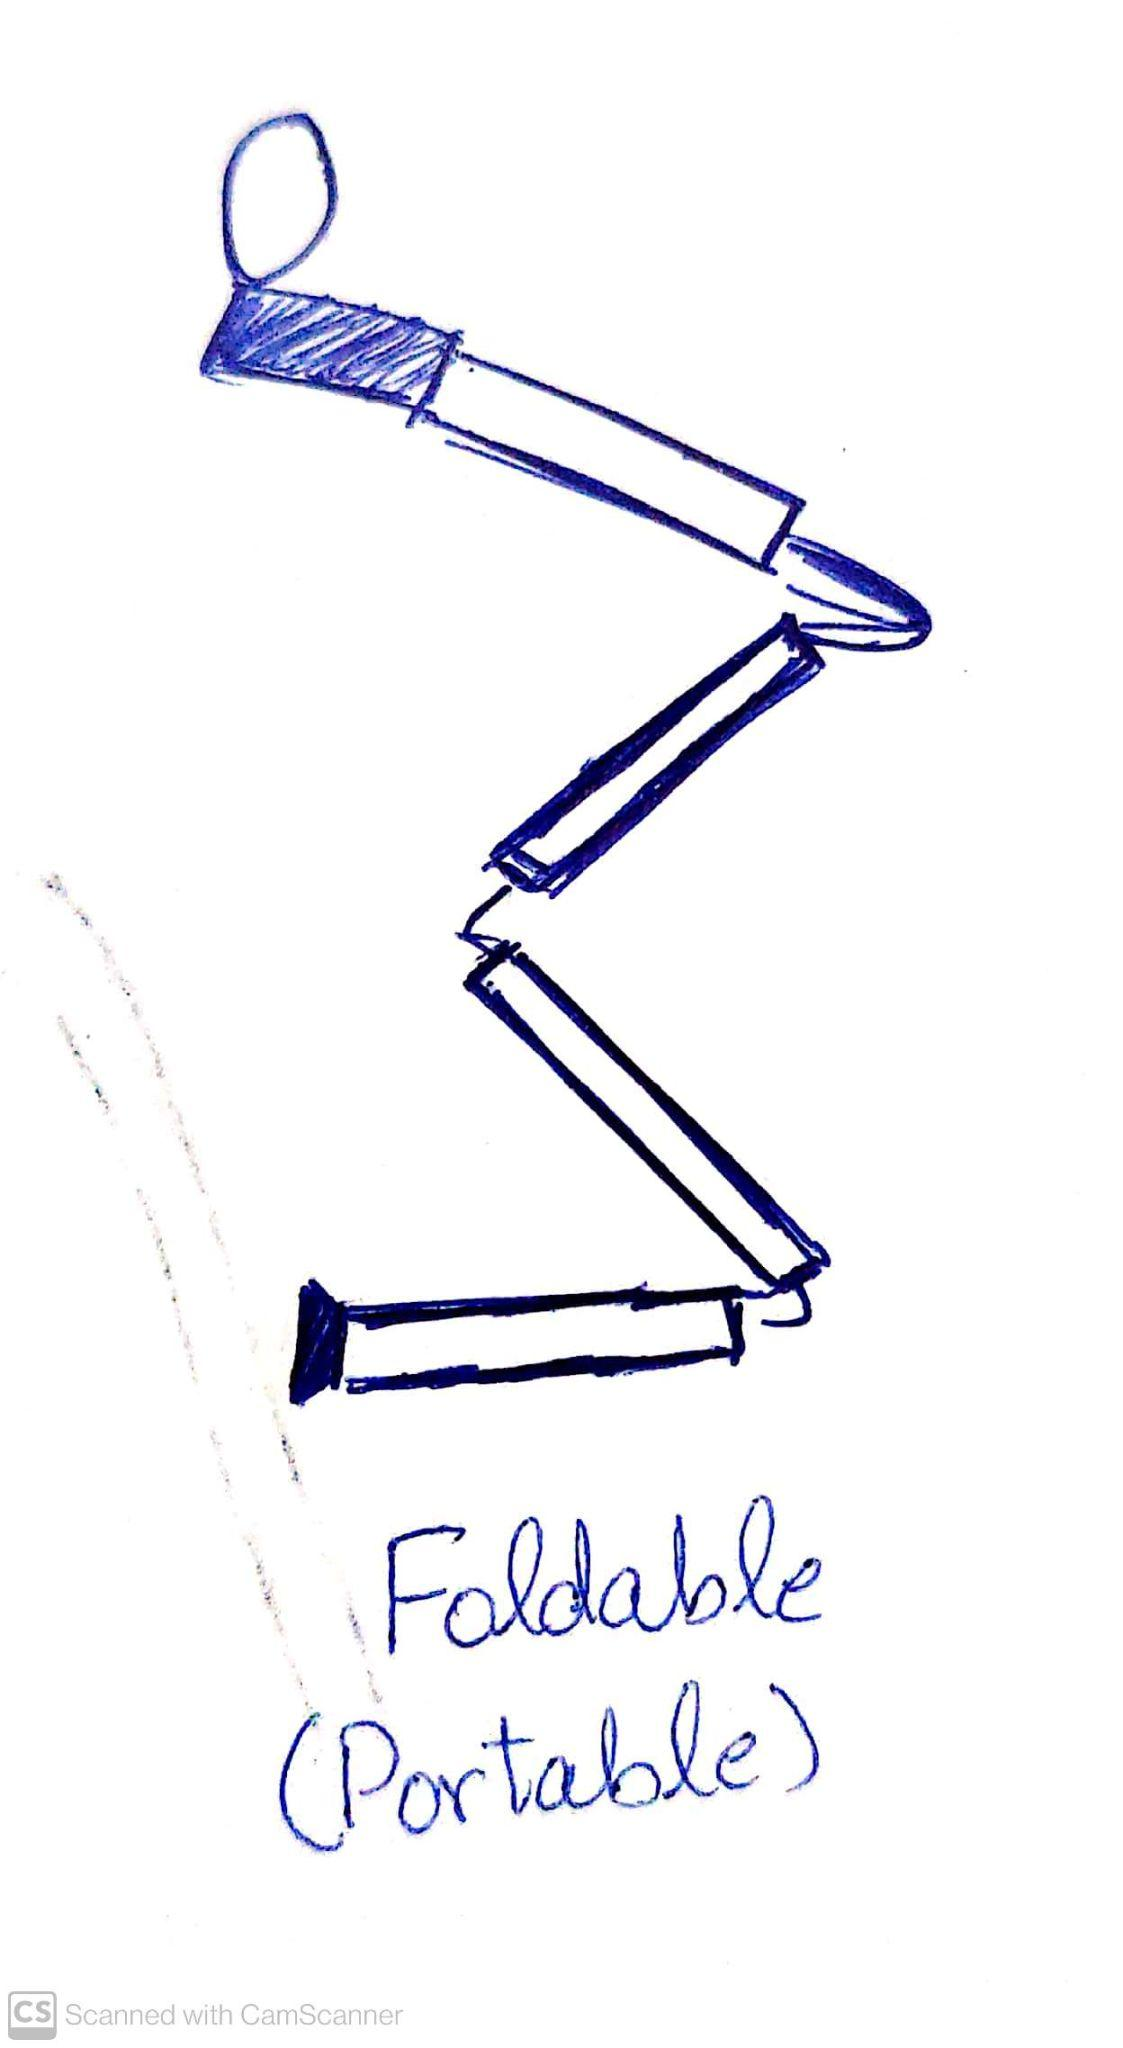 Foldable
(Portable)
CS Scanned with CamScanner